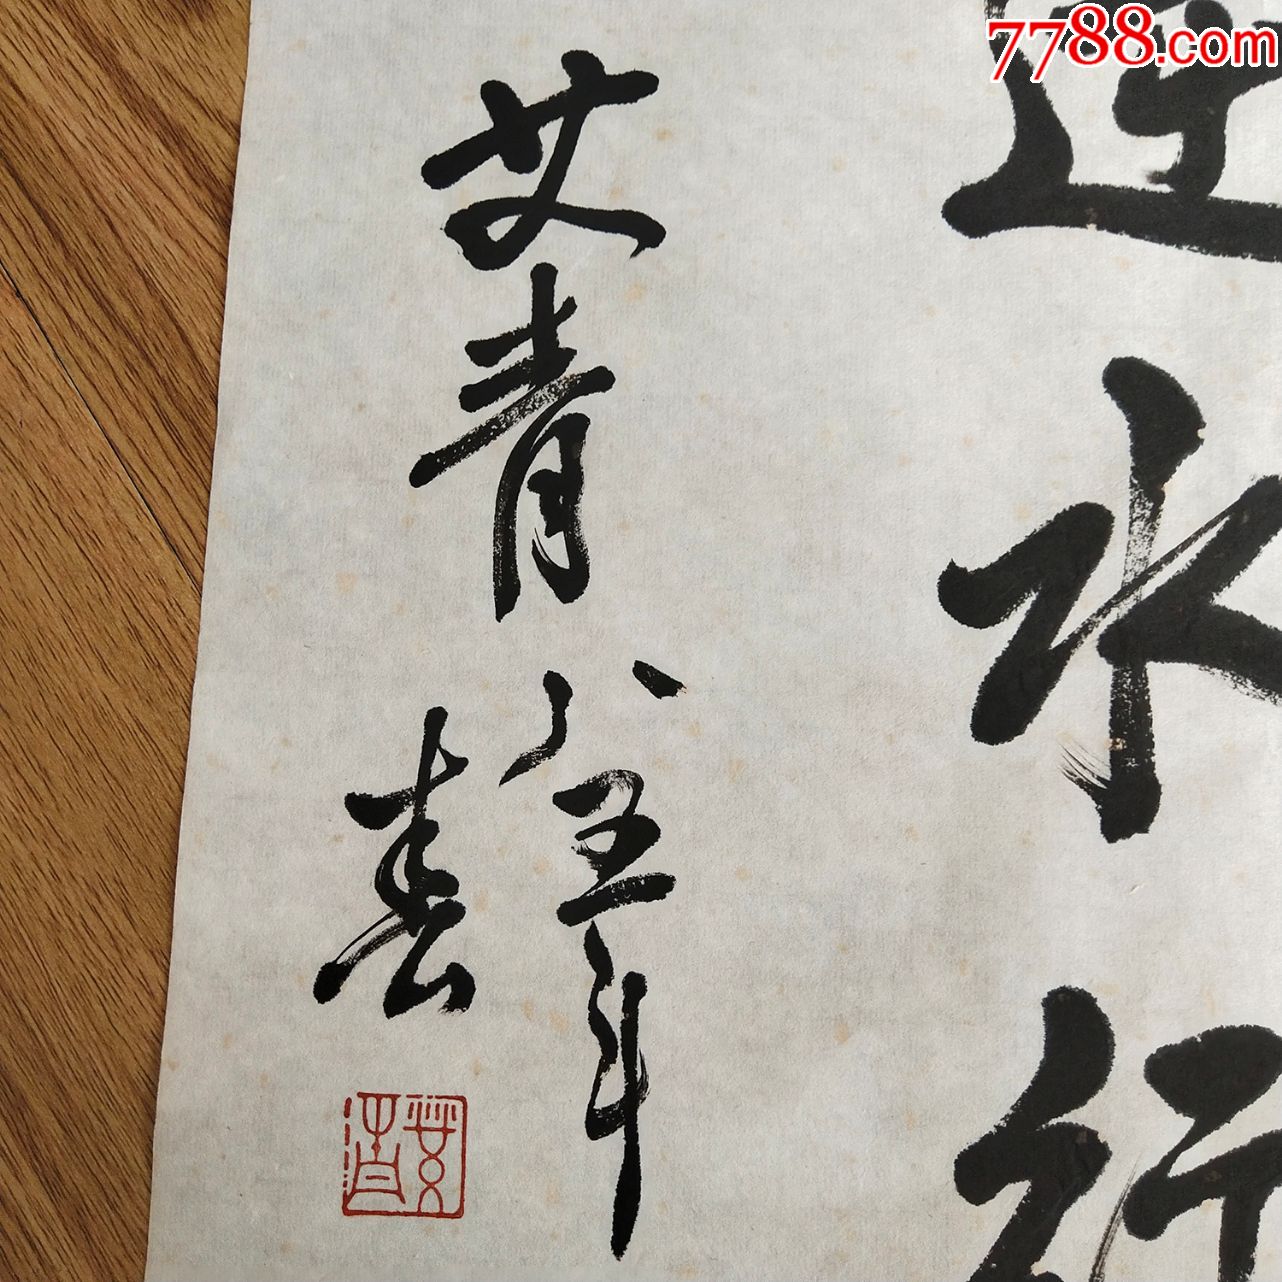 7788.com
水行
艾青
八五年
春
艾青